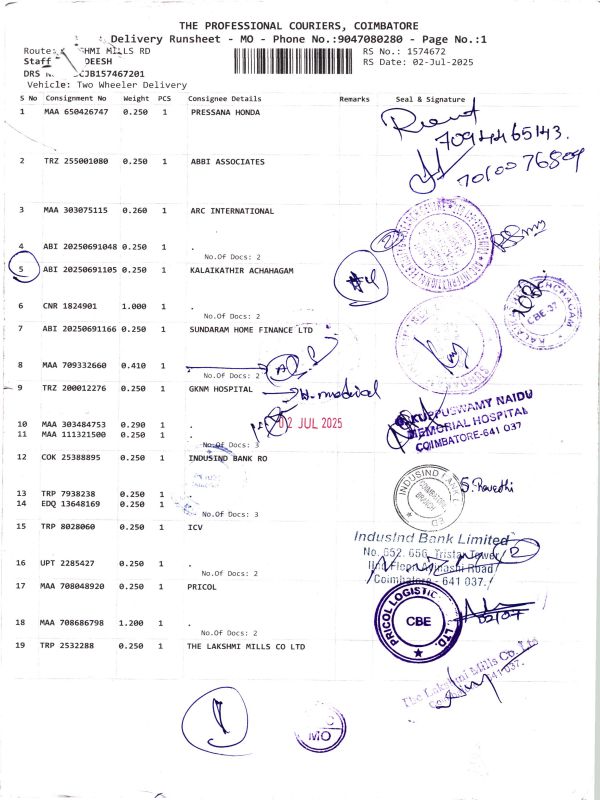 THE PROFESSIONAL COURIERS, COIMBATORE
Delivery Runsheet - MO - Phone No.:9047080280 - Page No.:1
SHMI MILLS RD RS No.: 1574672
Staff DEESH RS Date: 02-Jul-2025
DRS CJB157467201
Vehicle: Two Wheeler Delivery
S No Consignment No Weight PCS Consignee Details Remarks Seal & Signature
1 MAA 650426747 0.250 1 PRESSANA HONDA
7094465143.
2 TRZ 255001080 0.250 1 ABBI ASSOCIATES
7010076809
3 MAA 303075115 0.260 1 ARC INTERNATIONAL
4 ABI 20250691048 0.250 1 .
No.Of Docs: 2
2
5 ABI 20250691105 0.250 1 KALAIKATHIR ACHAHAGAM
#4
6 CNR 1824901 1.000 1 .
No.Of Docs: 2
CBE-37
7 ABI 20250691166 0.250 1 SUNDARAM HOME FINANCE LTD
8 MAA 709332660 0.410 1 .
No.Of Docs: 2
9 TRZ 200012276 0.250 1 GKNM HOSPITAL
KUPPUSWAMY NAIDU
MEMORIAL HOSPITAL
COIMBATORE-641 037
10 MAA 303484753 0.290 1 .
02 JUL 2025
11 MAA 111321500 0.250 1 .
No.Of Docs: 3
12 COK 25388895 0.250 1 INDUSIND BANK RO
INDUSIND BANK LTD
COIMBATORE
BRANCH
S. Revathi
13 TRP 7938238 0.250 1 .
14 EDQ 13648169 0.250 1 .
No.Of Docs: 3
15 TRP 8028060 0.250 1 ICV
IndusInd Bank Limited
No. 652, 656, Tristar Tower
IInd Floor Avinashi Road
Coimbatore - 641 037.
2
16 UPT 2285427 0.250 1 .
No.Of Docs: 2
17 MAA 708048920 0.250 1 PRICOL
PRICOL LOGISTICS LTD.
CBE
02/07
18 MAA 708686798 1.200 1 .
No.Of Docs: 2
19 TRP 2532288 0.250 1 THE LAKSHMI MILLS CO LTD
The Lakshmi Mills Co. Ltd
641 037.
MO